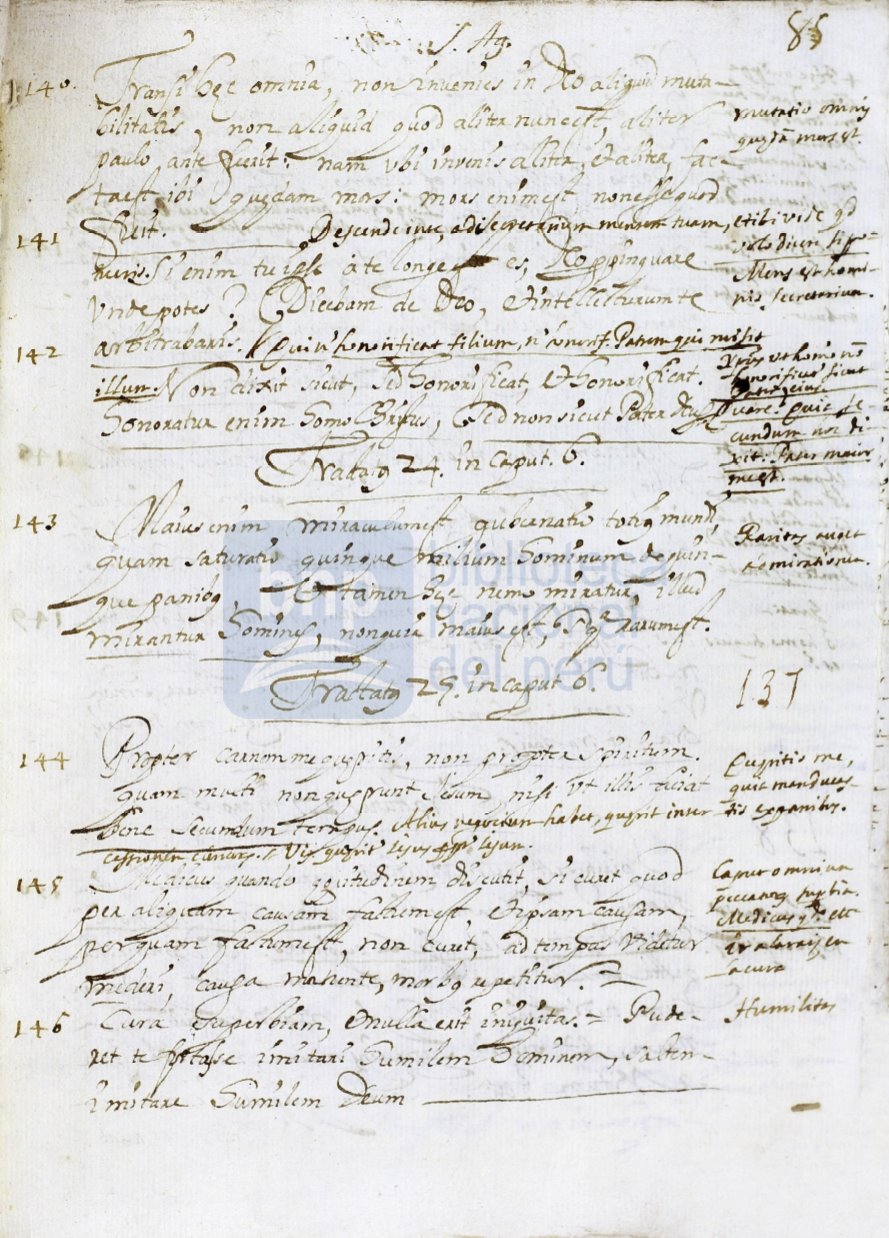 S. Ag.
85
140. Transi hęc omnia, non invenies in Deo aliquid muta-
bilitatis, non aliquid quod aliter nunc est, aliter
paulo ante fuerit: nam ubi invenis aliter, et aliter, fac-
ta est ibi quędam mors: mors enim est, non esse quod
mutatio omnis
quędã mors est.
141 fuit. Descende in te, adi secretarium mentem tuam,
neris. Si enim tu ipse a te longe es, Deo ppinquare
unde potes? Dicebam de Deo, et intellecturum te
arbitrabaris.
et ibi vide qd
velis dicere si po-
Mens est homi-
nis secretarium.
142 Qui nõ honorificat filium, nõ honorif. Patrem qui misit
illum. Non dixit sicut, sed honorificat, et honorificat.
honoratur enim homo Christus, sed non sicut Pater Deus
Xpus ut homo nõ
honorificat sicut
Quare? quia se-
cundum noc di-
xit: Pater maior
me est.
Tractatq 24. in caput. 6.
143 Maius enim miraculum est gubernatio totiq mundi,
quam saturatio quinque milium hominum de quin-
que panibq. Et tamen hęc nemo miratur, illud
mirantur homines, non quia maius est, sed quia rarum est.
Raritas auget
admirationem.
Tractatq 25. in caput 6.
137
144 Propter carnem me quęritis, non propter spiritum.
quam multi non quęrunt Jesum nisi ut illis faciat
bene secundum tempus. Alius negotium habet, quęrit inter
cessionem clericor. Vix quęrit' iesus ppt' iesum.
Quęritis me,
quia manducas-
tis ex panibus.
145 Medicus quando ęgritudinem discutit, si curet quod
per aliquam causam factum est, et ipsam causam,
per quam factum est, non curet, ad tempus videtur
mederi, causa manente, morbq repetitur.
Caput omnium
peccatorq supbia.
Medicus qdo etc
146 Cura superbiam, et nulla erit iniquitas. = Pude-
ret te fortasse imitari humilem hominem, saltem
imitare humilem Deum
Humilitas
biblioteca
nacional
del perú
bnp